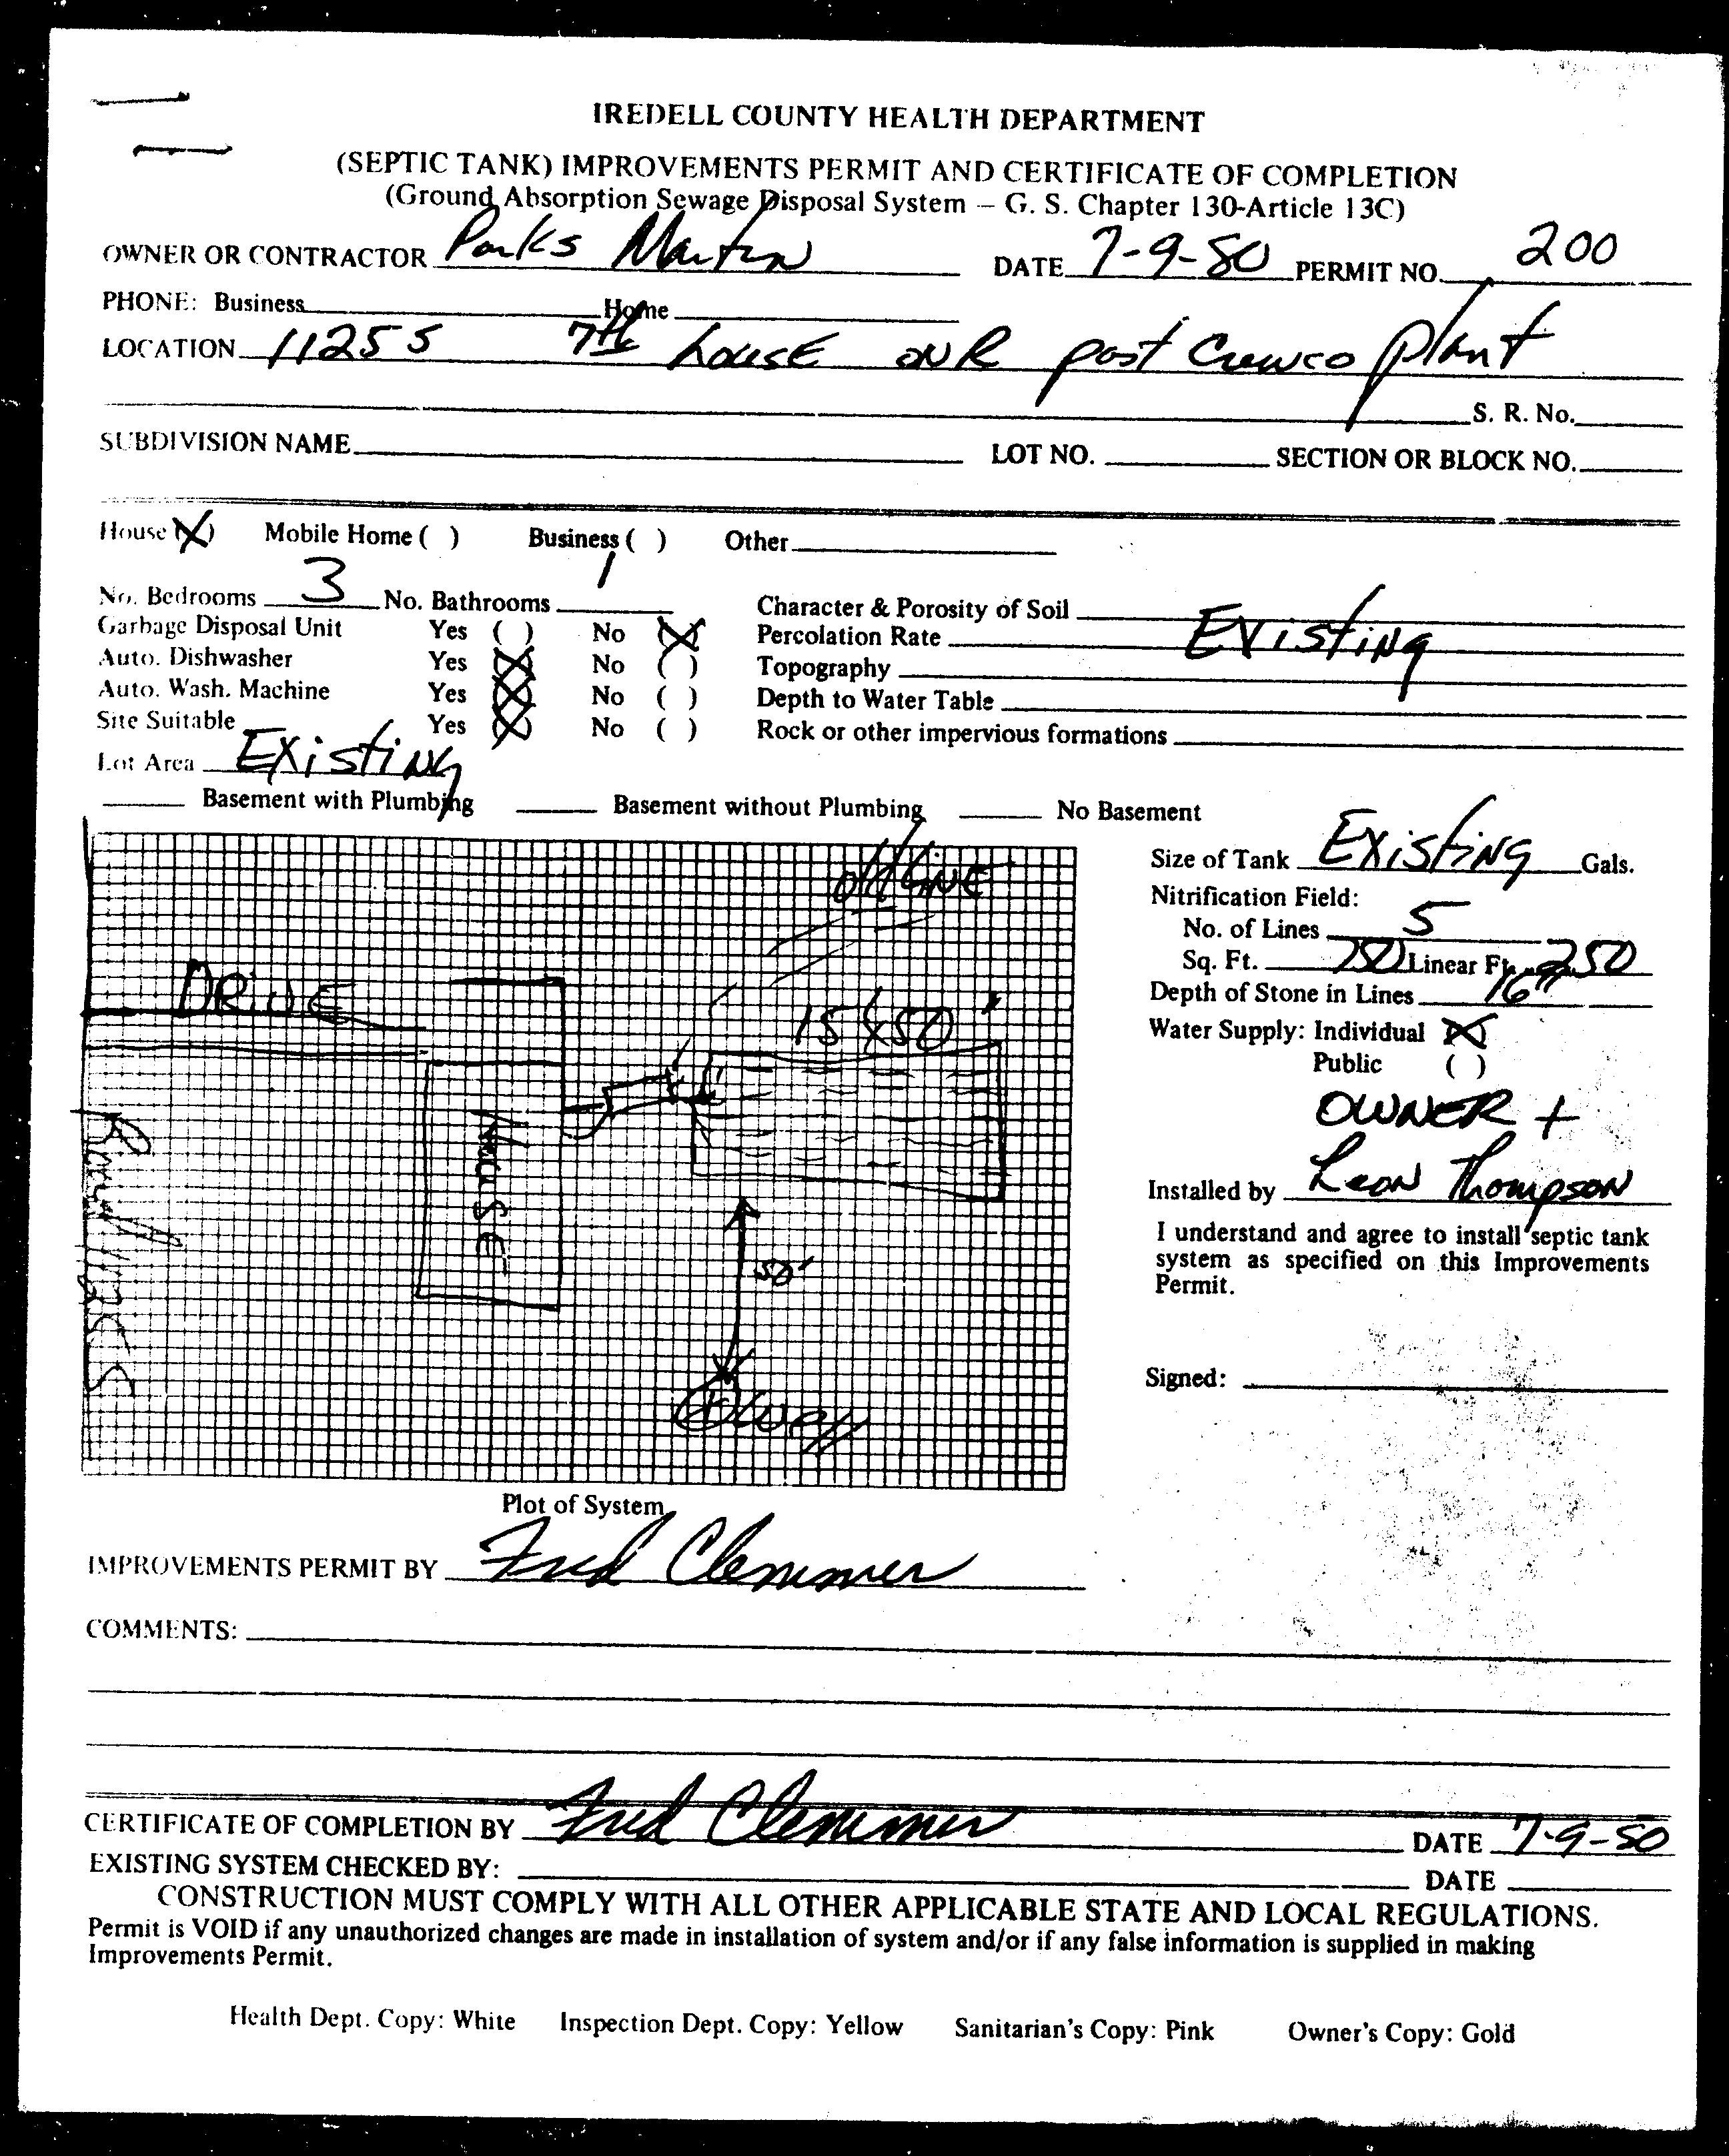 IREDELL COUNTY HEALTH DEPARTMENT
(SEPTIC TANK) IMPROVEMENTS PERMIT AND CERTIFICATE OF COMPLETION
(Ground Absorption Sewage Disposal System – G. S. Chapter 130-Article 13C)
OWNER OR CONTRACTOR Parks Martin DATE 7-9-80 PERMIT NO. 200
PHONE: Business Home
LOCATION 1125 S 7th house ON R past plant
S. R. No.
SUBDIVISION NAME LOT NO. SECTION OR BLOCK NO.
House (X) Mobile Home ( ) Business ( ) Other
No. Bedrooms 3 No. Bathrooms 1 Character & Porosity of Soil
Garbage Disposal Unit Yes ( ) No (X) Percolation Rate Existing
Auto. Dishwasher Yes (X) No ( ) Topography
Auto. Wash. Machine Yes (X) No ( ) Depth to Water Table
Site Suitable Yes (X) No ( ) Rock or other impervious formations
Lot Area Existing
Basement with Plumbing Basement without Plumbing No Basement
old LINE
DRIVE
15 X 50'
HOUSE
50'
Size of Tank Existing Gals.
Nitrification Field:
No. of Lines 5
Sq. Ft. 750 Linear Ft. 250
Depth of Stone in Lines 16"
Water Supply: Individual (X)
Public ( )
OWNER +
Installed by Leon Thompson
I understand and agree to install septic tank
system as specified on this Improvements
Permit.
Signed:
Plot of System
IMPROVEMENTS PERMIT BY Fred Clemmer
COMMENTS:
CERTIFICATE OF COMPLETION BY Fred Clemmer DATE 7-9-80
EXISTING SYSTEM CHECKED BY: DATE
CONSTRUCTION MUST COMPLY WITH ALL OTHER APPLICABLE STATE AND LOCAL REGULATIONS.
Permit is VOID if any unauthorized changes are made in installation of system and/or if any false information is supplied in making
Improvements Permit.
Health Dept. Copy: White Inspection Dept. Copy: Yellow Sanitarian's Copy: Pink Owner's Copy: Gold